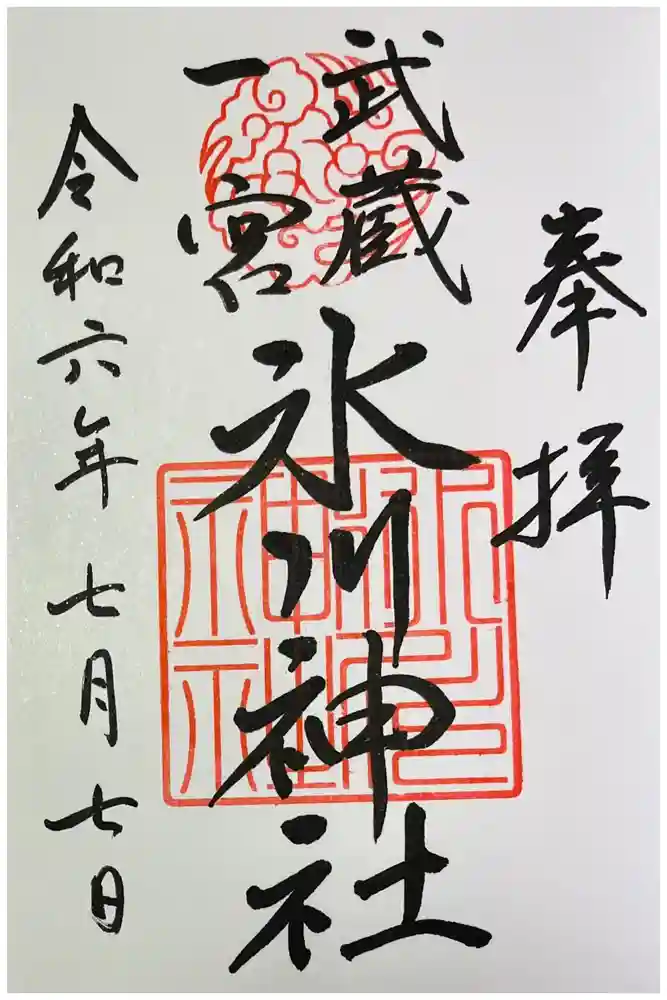 奉拝
武蔵
一宮
氷川神社
令和六年七月七日